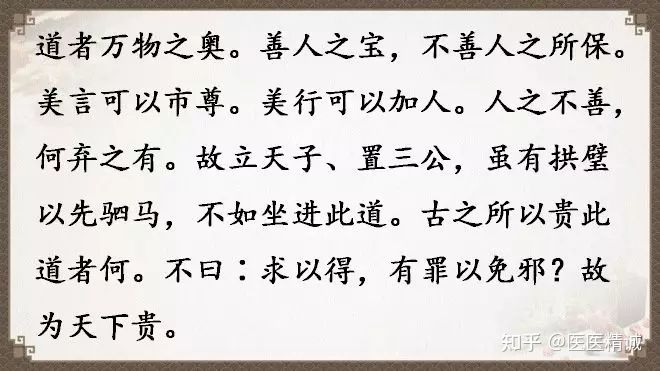 道者万物之奥。善人之宝，不善人之所保。
美言可以市尊。美行可以加人。人之不善，
何弃之有。故立天子、置三公，虽有拱璧
以先驷马，不如坐进此道。古之所以贵此
道者何。不曰：求以得，有罪以免邪？故
为天下贵。
知乎 @医医精诚